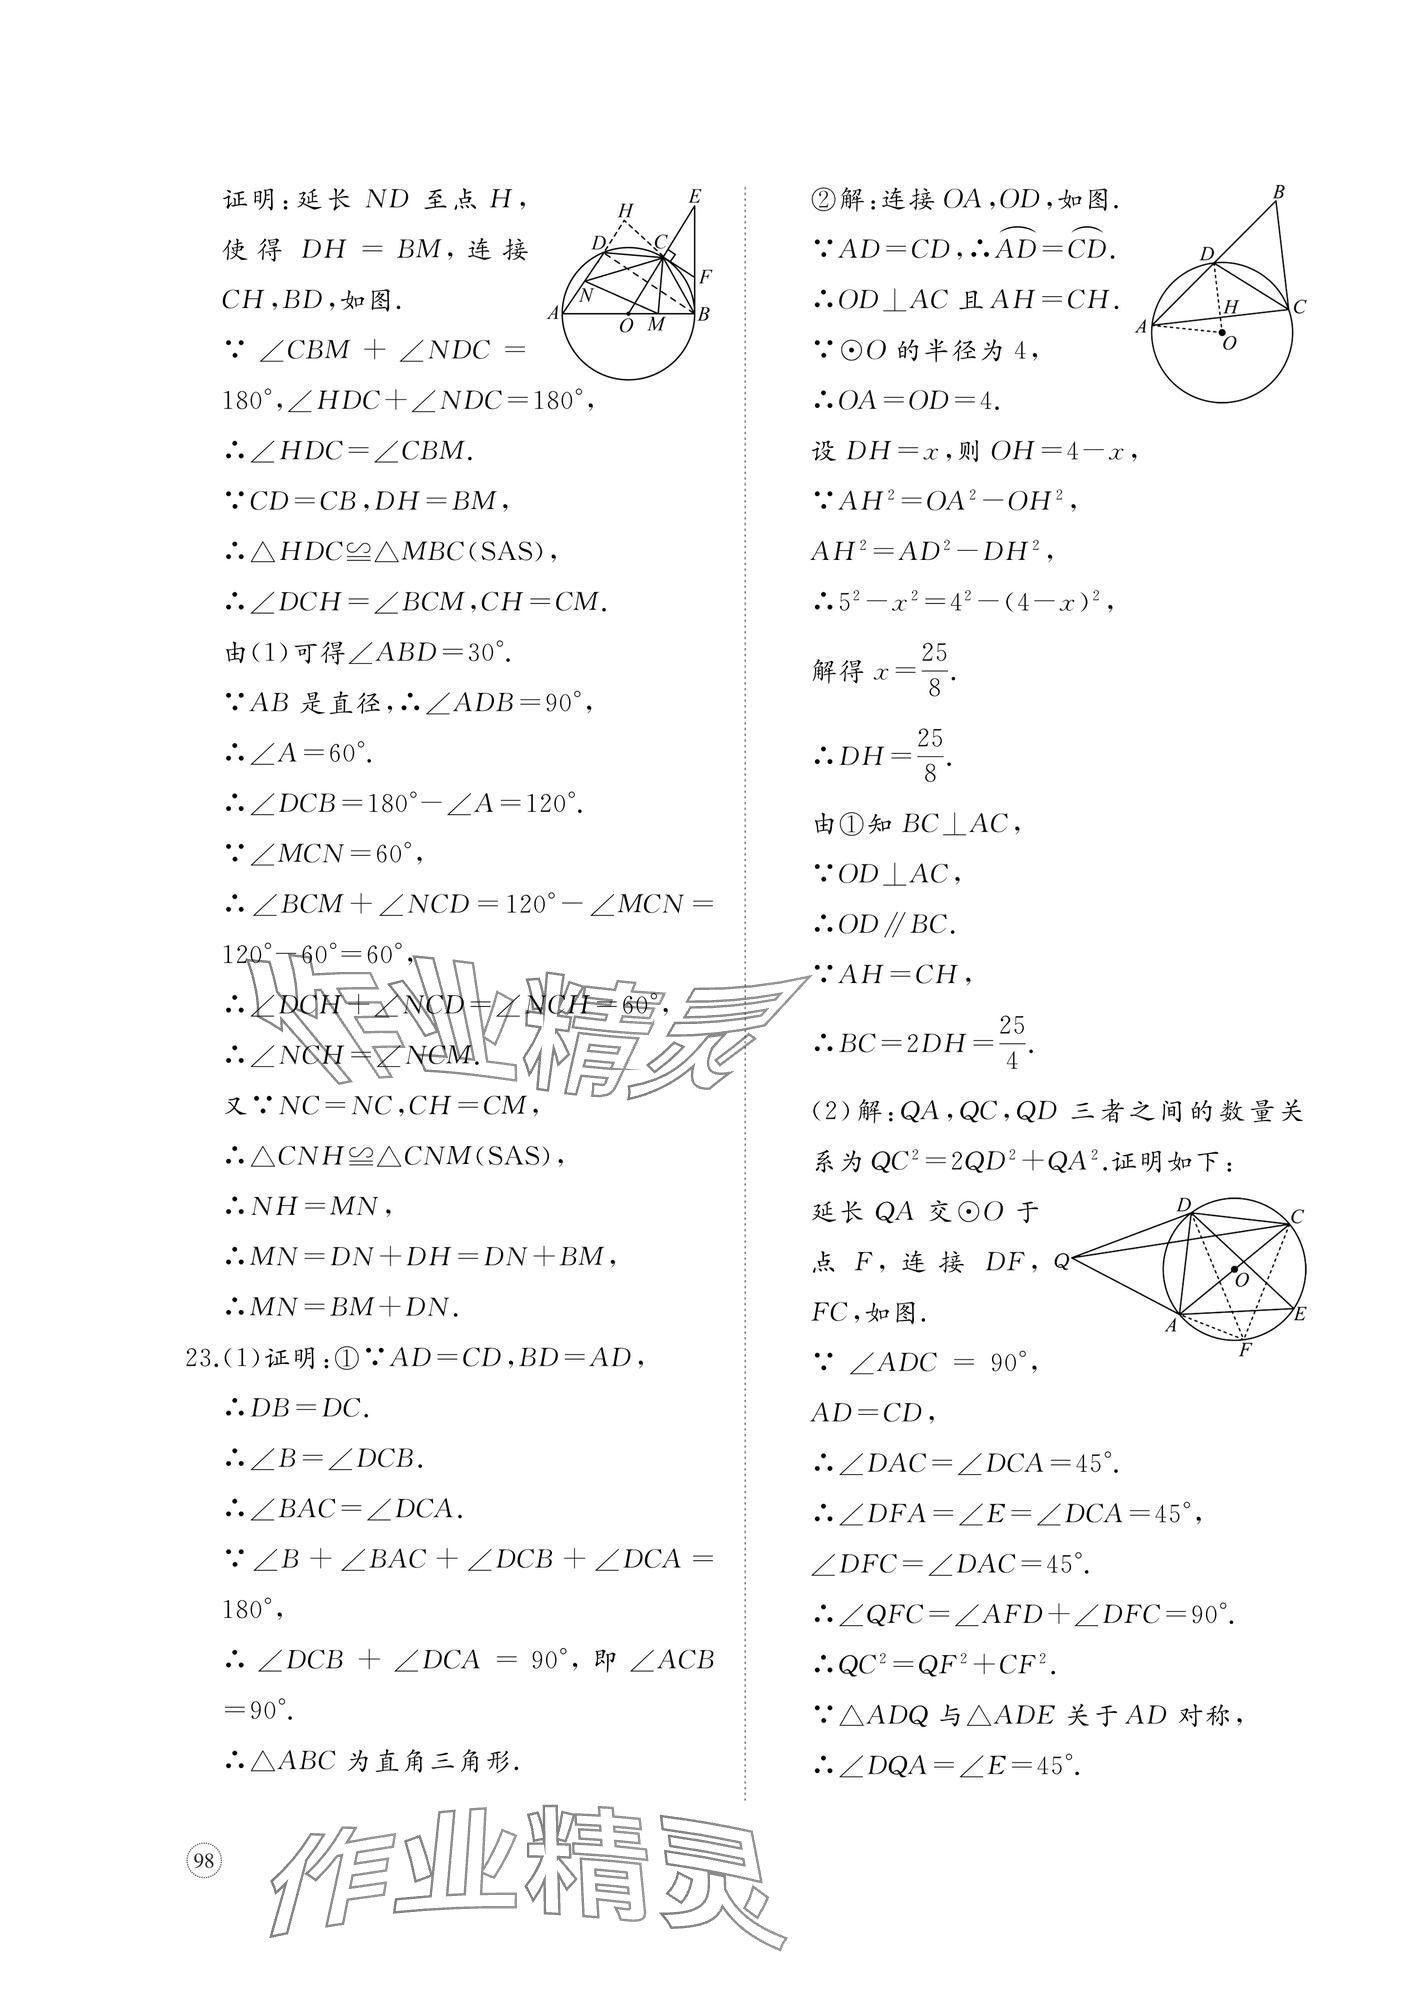 证明:延长 ND 至点 H,
使得 DH = BM,连接
CH,BD,如图.
∵ ∠CBM + ∠NDC =
180°,∠HDC+∠NDC=180°,
∴∠HDC=∠CBM.
∵CD=CB,DH=BM,
∴△HDC≌△MBC(SAS),
∴∠DCH=∠BCM,CH=CM.
由(1)可得∠ABD=30°.
∵AB 是直径,∴∠ADB=90°,
∴∠A=60°.
∴∠DCB=180°-∠A=120°.
∵∠MCN=60°,
∴∠BCM+∠NCD=120°-∠MCN=
120°-60°=60°,
∴∠DCH+∠NCD=∠NCH=60°,
∴∠NCH=∠NCM.
又∵NC=NC,CH=CM,
∴△CNH≌△CNM(SAS),
∴NH=MN,
∴MN=DN+DH=DN+BM,
∴MN=BM+DN.
23.(1)证明:①∵AD=CD,BD=AD,
∴DB=DC.
∴∠B=∠DCB.
∴∠BAC=∠DCA.
∵∠B+∠BAC+∠DCB+∠DCA=
180°,
∴ ∠DCB + ∠DCA = 90°, 即 ∠ACB
=90°.
∴△ABC 为直角三角形.
E
H
D
C
F
N
A
O
M
B
②解:连接 OA,OD,如图.
∵AD=CD,∴AD⌒=CD⌒.
∴OD⊥AC 且 AH=CH.
∵⊙O 的半径为 4,
∴OA=OD=4.
设 DH=x,则 OH=4-x,
∵AH²=OA²-OH²,
AH²=AD²-DH²,
∴5²-x²=4²-(4-x)²,
解得 x=25/8.
∴DH=25/8.
由①知 BC⊥AC,
∵OD⊥AC,
∴OD∥BC.
∵AH=CH,
∴BC=2DH=25/4.
(2)解:QA,QC,QD 三者之间的数量关
系为 QC²=2QD²+QA².证明如下:
延长 QA 交⊙O 于
点 F, 连接 DF,
FC,如图.
∵ ∠ADC = 90°,
AD=CD,
∴∠DAC=∠DCA=45°.
∴∠DFA=∠E=∠DCA=45°,
∠DFC=∠DAC=45°.
∴∠QFC=∠AFD+∠DFC=90°.
∴QC²=QF²+CF².
∵△ADQ 与△ADE 关于 AD 对称,
∴∠DQA=∠E=45°.
B
D
H
C
A
O
D
C
Q
O
A
E
F
作业精灵
作业精灵
98